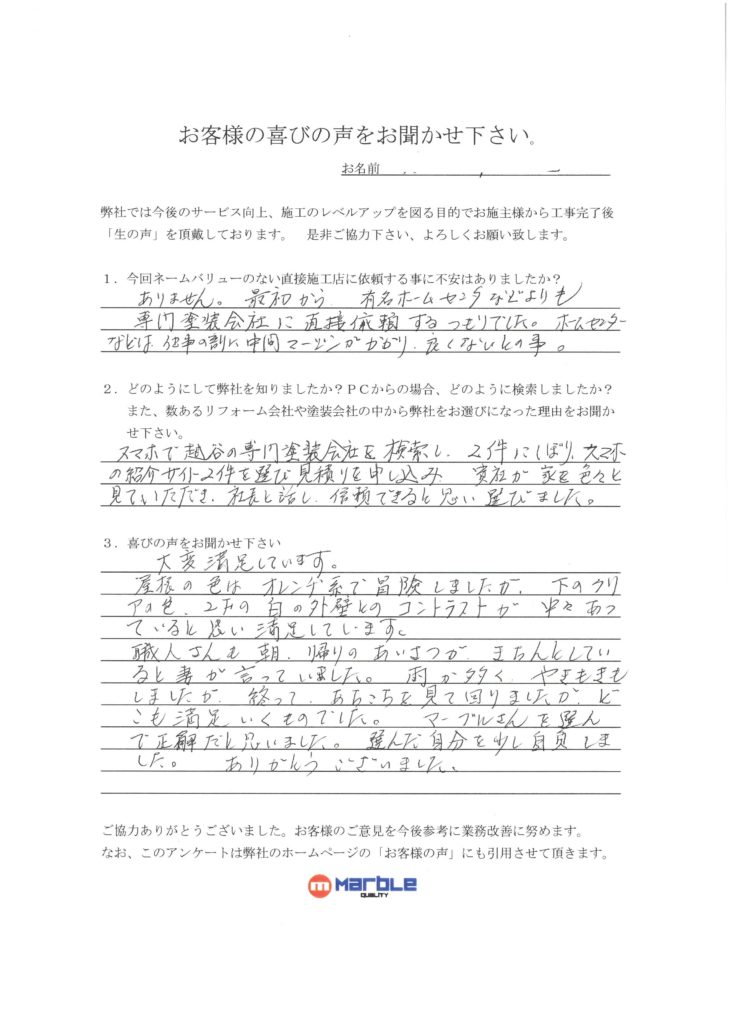 お客様の喜びの声をお聞かせ下さい。
お名前
弊社では今後のサービス向上、施工のレベルアップを図る目的でお施主様から工事完了後
「生の声」を頂戴しております。 是非ご協力下さい、よろしくお願い致します。
1．今回ネームバリューのない直接施工店に依頼する事に不安はありましたか？
ありません。 最初から 有名ホームセンタなどよりも
専門塗装会社に直接依頼するつもりでした。ホームセンター
などは、仕事の割に中間マージンがかかり、良くないとの事。
2．どのようにして弊社を知りましたか？PCからの場合、どのように検索しましたか？
また、数あるリフォーム会社や塗装会社の中から弊社をお選びになった理由をお聞か
せ下さい。
スマホで越谷の専門塗装会社を検索し、2件にしぼり、スマホ
の紹介サイト2件を選び見積りを申し込み 貴社が家を色々と
見ていただき、社長と話し、信頼できると思い選びました。
3．喜びの声をお聞かせ下さい
大変満足しています。
屋根の色はオレンヂ系で冒険しましたが、下のクリ
アの色、2Fの白の外壁とのコントラストが 中々あっ
ていると思い満足しています。
職人さんも朝、帰りのあいさつが、きちんとしてい
ると妻が言っていました。 雨が多く、やきもきも
しましたが、終って、あちこちを見て回りましたが ど
こも満足いくものでした。 マーブルさんを選ん
で正解だと思いました。 選んだ自分を少し自負しま
した。 ありがとうございました、
ご協力ありがとうございました。お客様のご意見を今後参考に業務改善に努めます。
なお、このアンケートは弊社のホームページの「お客様の声」にも引用させて頂きます。
m MARBLE
QUALITY